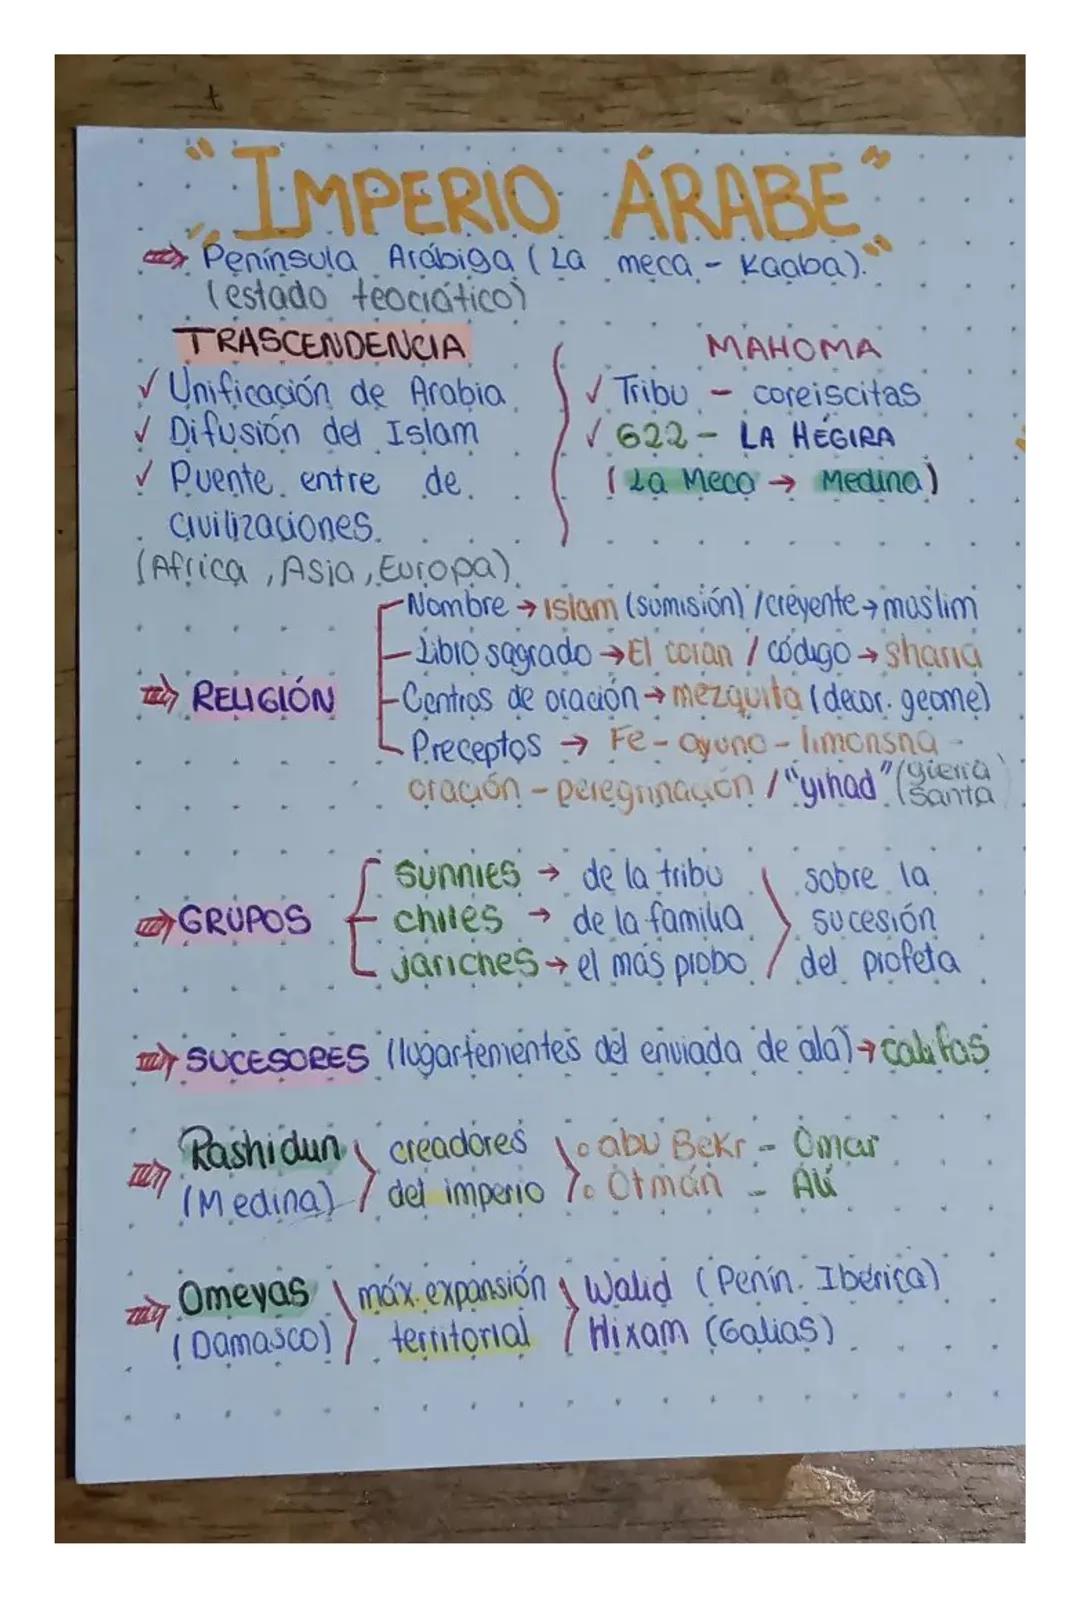 "IMPERIO ÁRABE"
⇒ Península Arábiga (La meca - Kaaba).
(estado teocrático)
TRASCENDENCIA
✓ Unificación de Arabia
✓ Difusión del Islam
✓ Puente entre de
civilizaciones.
(Africa, Asia, Europa)
MAHOMA
✓ Tribu - coreiscitas
✓ 622 - LA HÉGIRA
(La Meca → Medina)
⇒ RELIGIÓN
- Nombre → Islam (sumisión) / creyente → muslim
- Libro sagrado → El corán / código → sharia
- Centros de oración → mezquita (decor. geome)
- Preceptos → Fe - ayuno - limonsna -
oración - peregrinación / "yihad" (gierra santa)
⇒ GRUPOS
sunnies → de la tribu
chiies → de la familia
jariches → el más probo
sobre la
sucesión
del profeta
⇒ SUCESORES (lugartenientes del enviada de alá) → califas
⇒ Rashidun
(Medina)
creadores
del imperio
○ abu Bekr - Omar
○ Otmán - Alí
⇒ Omeyas
(Damasco)
máx. expansión
territorial
Walid (Penín. Ibérica)
Hixam (Galias)